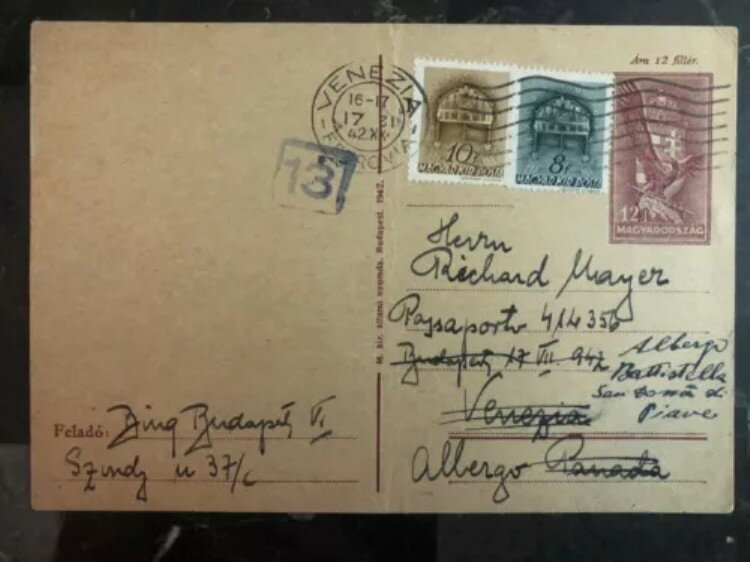 Ára 12 fillér.
VENEZIA
16-17
17
42 XX
FERROVIA
13
10f
MAGYAR KIR. POSTA
8f
MAGYAR KIR. POSTA
12f
MAGYARORSZÁG
M. kir. állami nyomda. Budapest. 1942.
Herrn
Richard Mayer
414356
Budapest 17 VII. 942
Venezia
Albergo
Albergo
Battistella
San Donà di
Piave
Feladó: Budapest VI
u 37/c